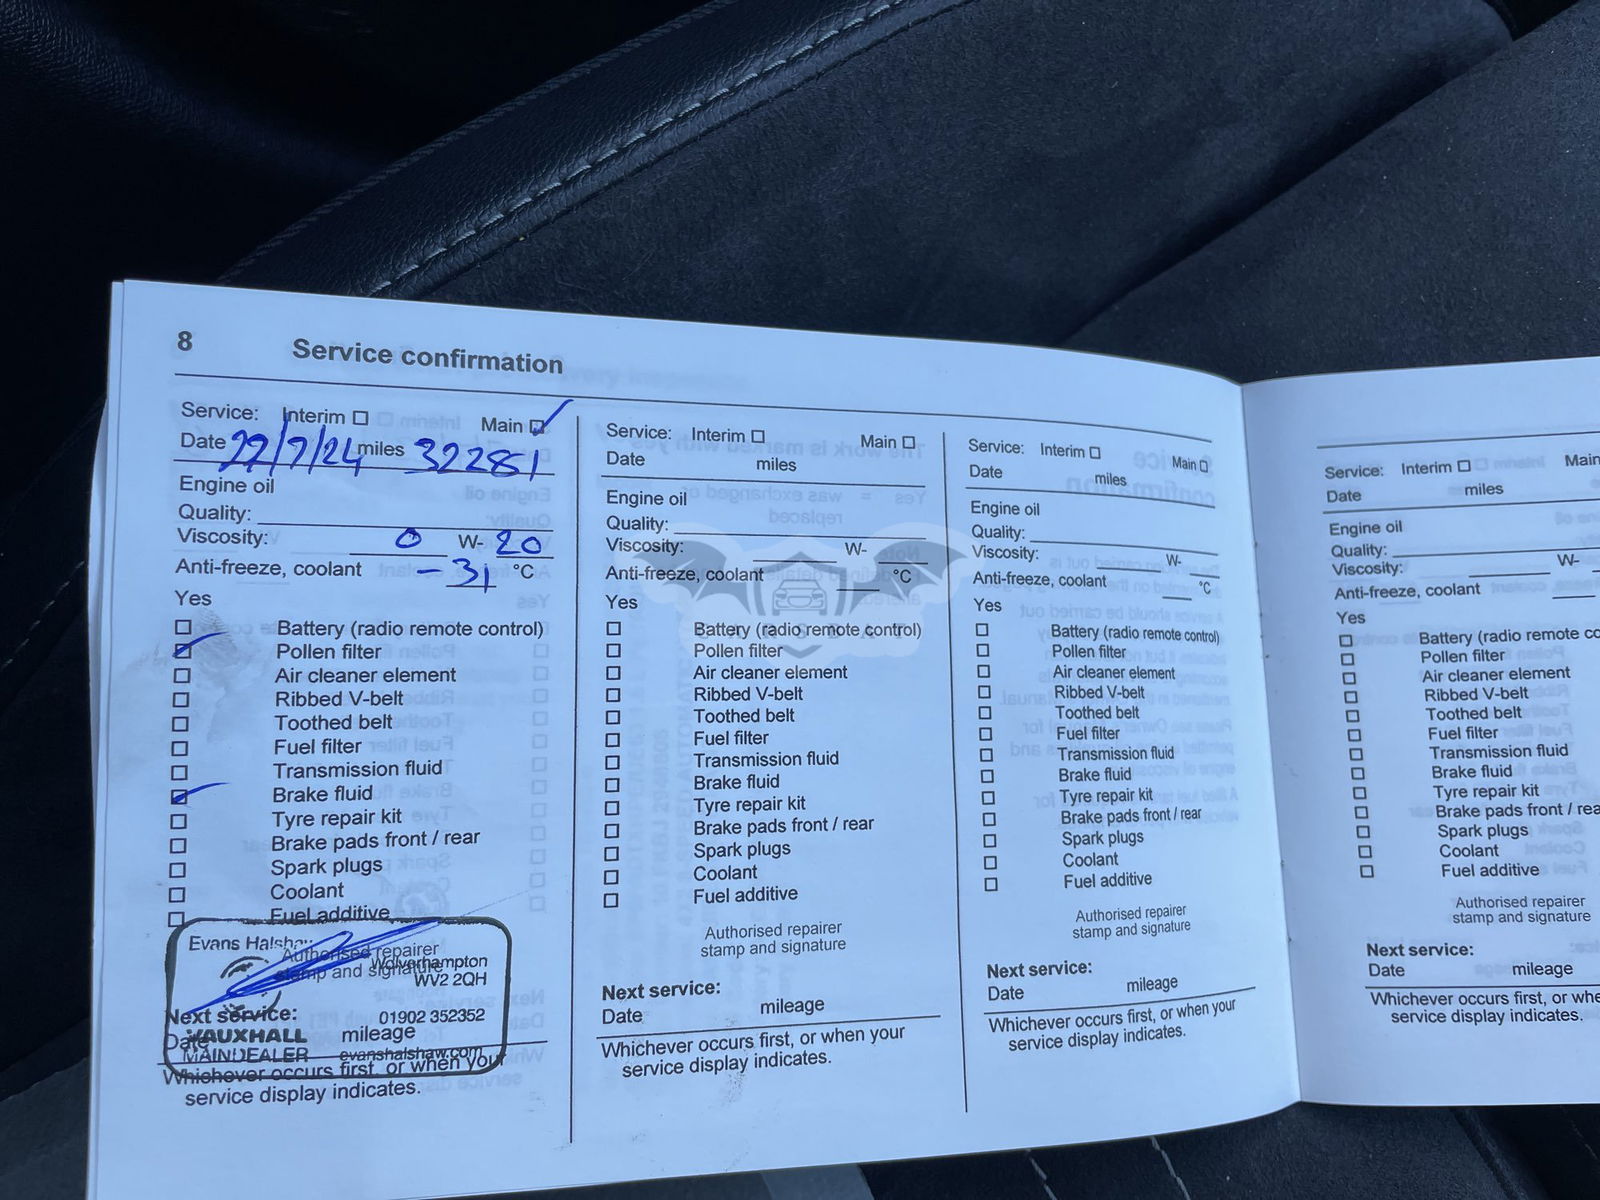 8 Service confirmation
Service: Interim Main
Date 22/7/24 miles 32281
Engine oil
Quality:
Viscosity: 0 W- 20
Anti-freeze, coolant -31 °C
Yes
Battery (radio remote control)
Pollen filter
Air cleaner element
Ribbed V-belt
Toothed belt
Fuel filter
Transmission fluid
Brake fluid
Tyre repair kit
Brake pads front / rear
Spark plugs
Coolant
Fuel additive
Evans Halshaw
Authorised repairer
Wolverhampton
stamp and signature
WV2 2QH
Next service: 01902 352352
VAUXHALL
Date mileage
MAINDEALER evanshalshaw.com
Whichever occurs first, or when your
service display indicates.
Service: Interim Main
Date miles
Engine oil
Quality:
Viscosity: W-
Anti-freeze, coolant °C
Yes
Battery (radio remote control)
Pollen filter
Air cleaner element
Ribbed V-belt
Toothed belt
Fuel filter
Transmission fluid
Brake fluid
Tyre repair kit
Brake pads front / rear
Spark plugs
Coolant
Fuel additive
Authorised repairer
stamp and signature
Next service:
Date mileage
Whichever occurs first, or when your
service display indicates.
Service: Interim Main
Date miles
Engine oil
Quality:
Viscosity: W-
Anti-freeze, coolant °C
Yes
Battery (radio remote control)
Pollen filter
Air cleaner element
Ribbed V-belt
Toothed belt
Fuel filter
Transmission fluid
Brake fluid
Tyre repair kit
Brake pads front / rear
Spark plugs
Coolant
Fuel additive
Authorised repairer
stamp and signature
Next service:
Date mileage
Whichever occurs first, or when your
service display indicates.
Service: Interim Main
Date miles
Engine oil
Quality:
Viscosity: W-
Anti-freeze, coolant
Yes
Battery (radio remote co
Pollen filter
Air cleaner element
Ribbed V-belt
Toothed belt
Fuel filter
Transmission fluid
Brake fluid
Tyre repair kit
Brake pads front / rea
Spark plugs
Coolant
Fuel additive
Authorised repairer
stamp and signature
Next service:
Date mileage
Whichever occurs first, or whe
service display indicates.